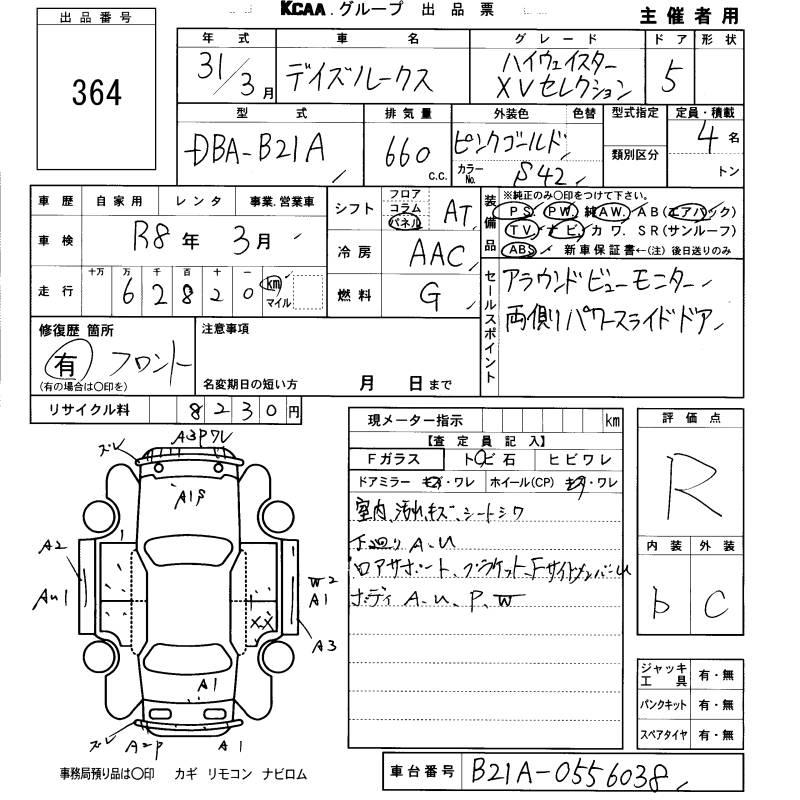 KCAA.グループ 出品票
主催者用
出品番号
364
年式 車名 グレード ドア 形状
31/3月 デイズルークス ハイウェイスター XVセレクション 5
型式 排気量 外装色 色替 型式指定 定員・積載
DBA-B21A 660 C.C. ピンクゴールド 4名
カラーNo. S42 類別区分 トン
車歴 自家用 レンタ 事業.営業車
車検 R8年 3月
走行 十万 万 千 百 十 一
6 2 8 2 0 km マイル
シフト フロア コラム パネル AT
冷房 AAC
燃料 G
装備品 ※純正のみ○印をつけて下さい。
PS. PW. 純AW. AB(エアバック)
TV. ナビ. カワ. SR(サンルーフ)
ABS. 新車保証書←(注) 後日送りのみ
セールスポイント
アラウンドビューモニター
両側パワースライドドア
修復歴 箇所
有 フロント
(有の場合は○印を)
注意事項
名変期日の短い方 月 日まで
リサイクル料 8230円
現メーター指示 km
【査定員記入】
Fガラス トビ石 ヒビワレ
ドアミラー キズ・ワレ ホイール(CP) キズ・ワレ
室内、汚れ、キズ、シートシワ
下廻り A.U
ロアサポート、ブラケット、Fサイドメンバーu
ボディ A.U、P、W
評価点
R
内装 外装
b C
ズレ A3Pワレ
A1P
A2
AU1
W2
A1
XX
A3
A1
ズレ A2P A1
ジャッキ 工具 有・無
パンクキット 有・無
スペアタイヤ 有・無
事務局預り品は○印 カギ リモコン ナビロム
車台番号 B21A-0556038